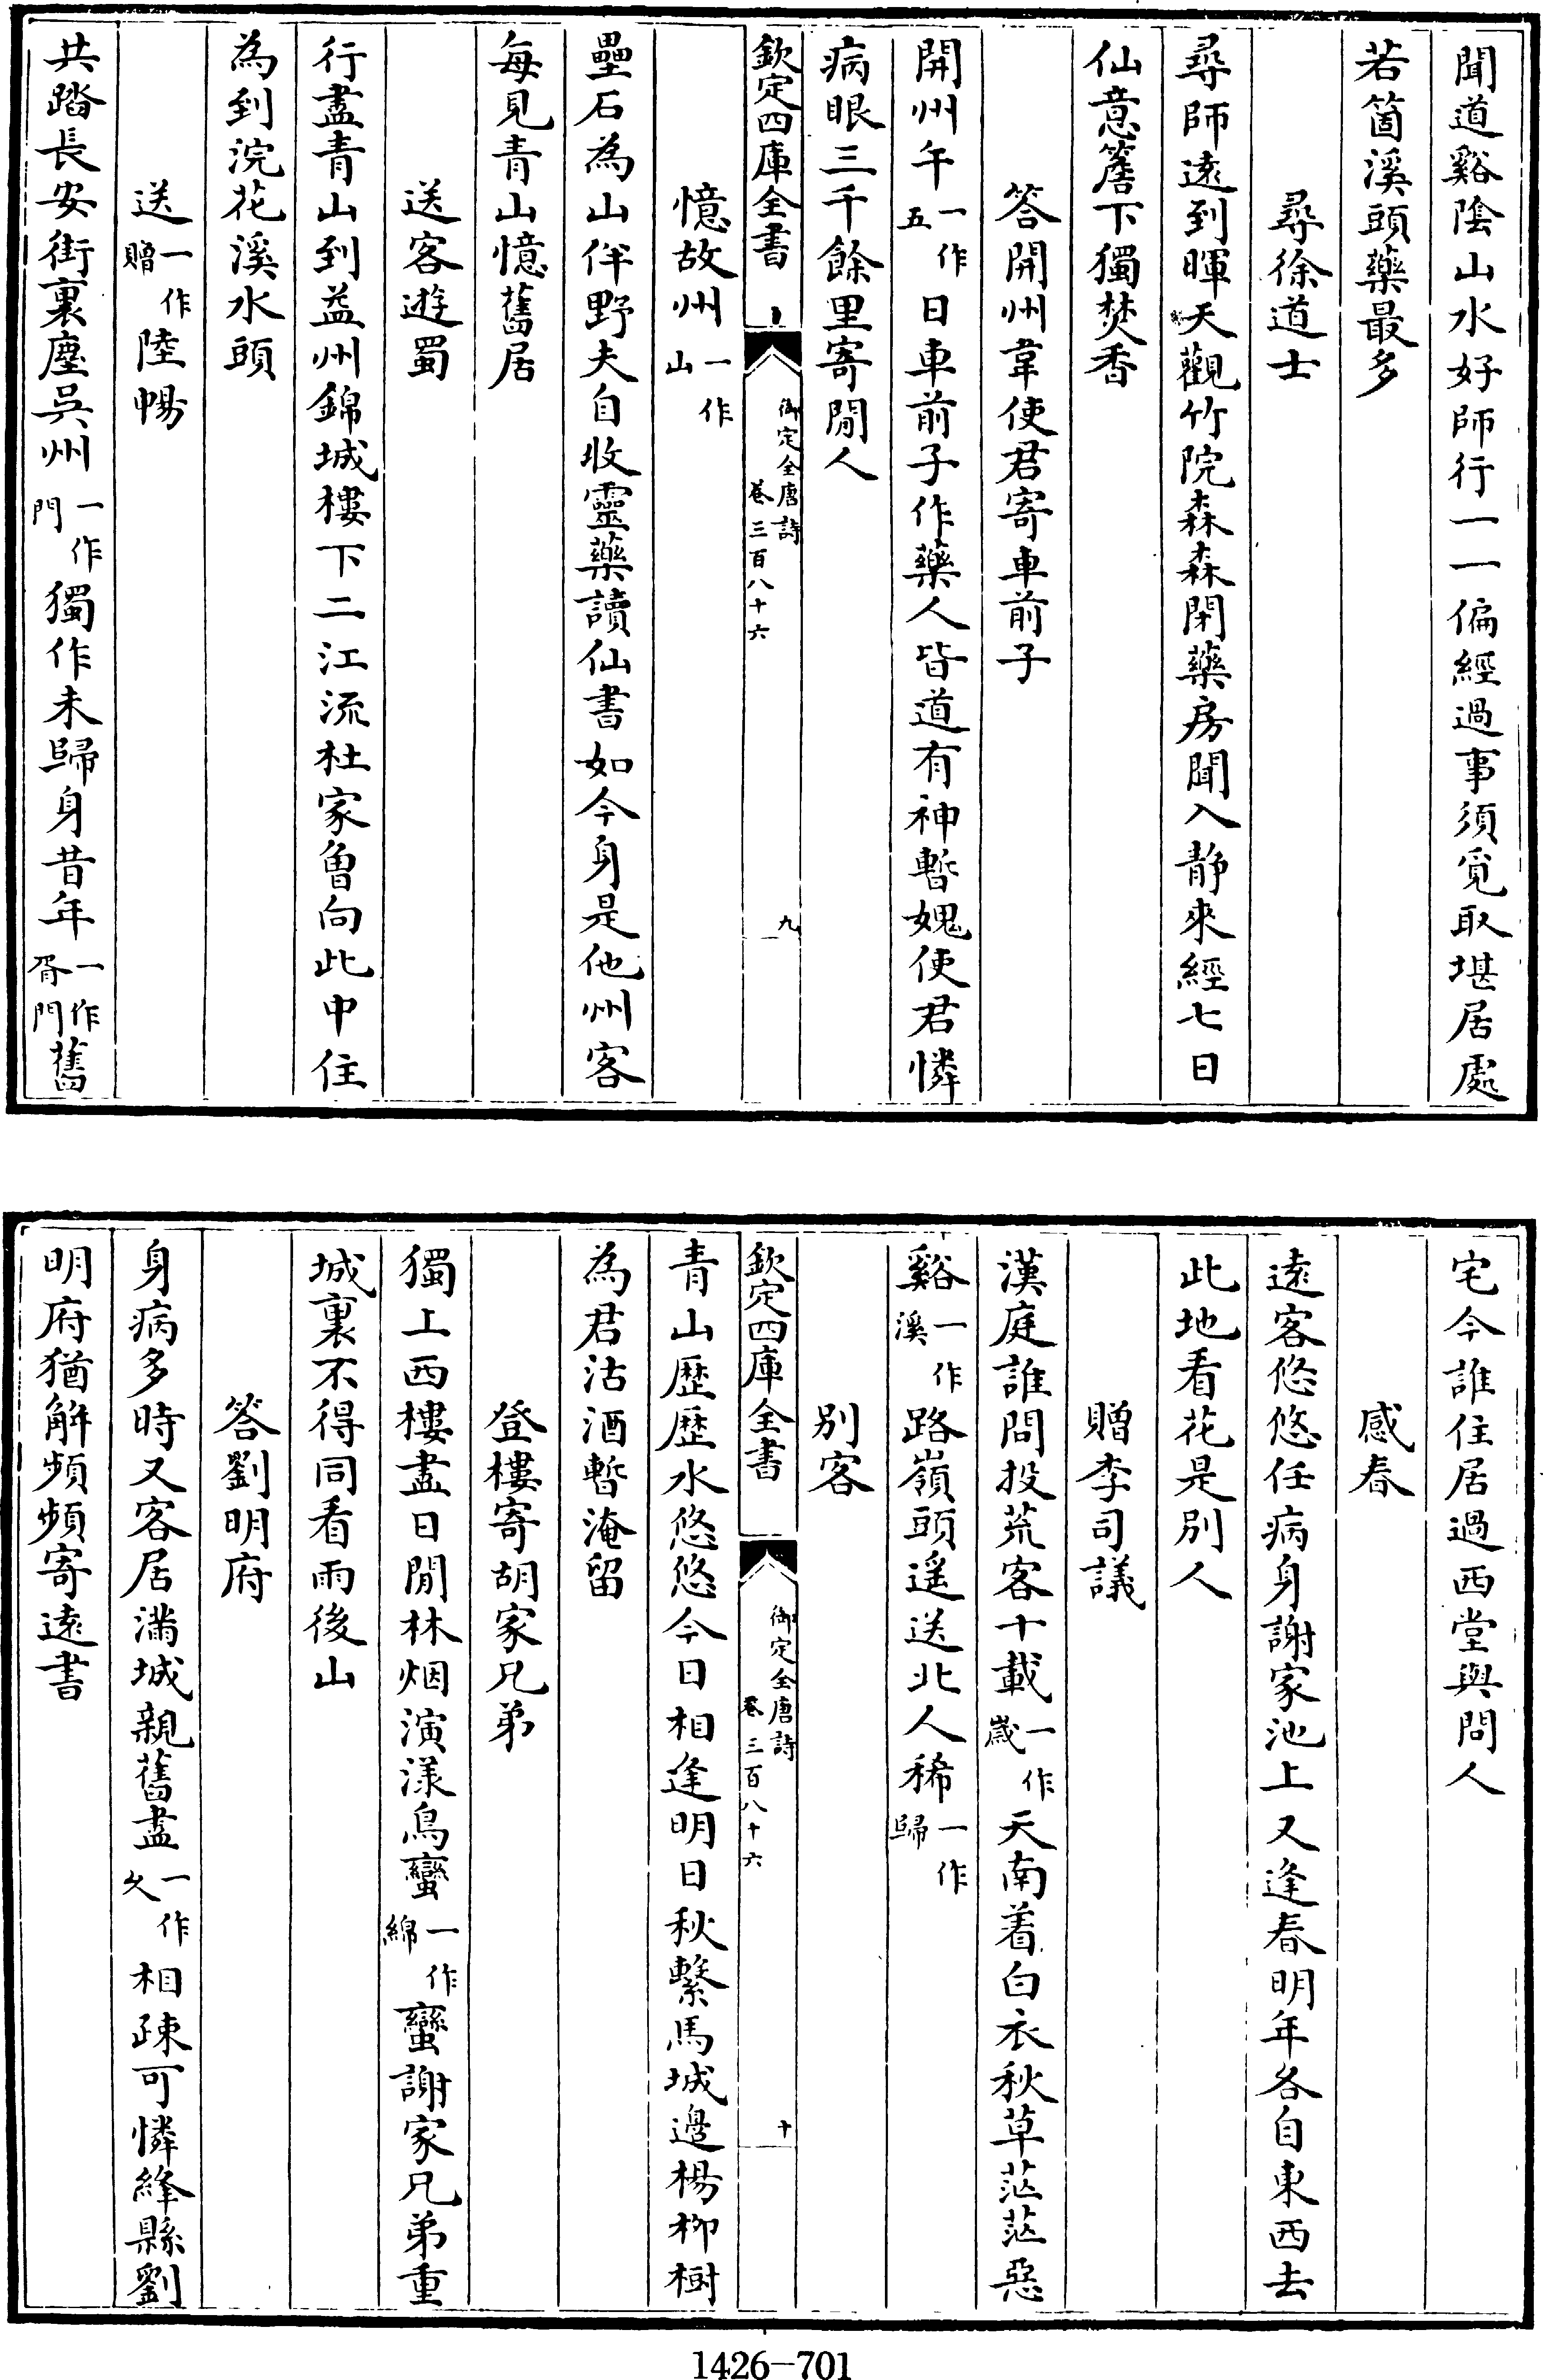 聞道谿隂山水好師行一一偏經過事須覓取堪居處
若箇溪頭藥最多
尋徐道士
尋師逺到暉天觀竹院森森閉藥房聞入静來經七日
仙意簷下獨焚香
答開州韋使君寄車前子
開州午一作五日車前子作藥人皆道有神暫媿使君憐
病眼三千餘里寄閒人
欽定四庫全書 御定全唐詩 卷三百八十六 九
憶故州一作山
壘石為山伴野夫自收靈藥讀仙書如今身是他州客
每見青山憶舊居
送客遊蜀
行盡青山到益州錦城樓下二江流杜家曾向此中住
為到浣花溪水頭
送一作贈陸暢
共踏長安街裏塵吳州一作門獨作未歸身昔年一作胥門舊
宅今誰住居過西堂與問人
感春
逺客悠悠任病身謝家池上又逢春明年各自東西去
此地看花是别人
贈李司議
漢庭誰問投荒客十載一作歲天南着白衣秋草茫茫惡
谿一作溪路嶺頭遥送北人稀一作歸
别客
欽定四庫全書 御定全唐詩 卷三百八十六 十
青山歴歴水悠悠今日相逢明日秋繫馬城邊楊柳樹
為君沽酒暫淹留
登樓寄胡家兄弟
獨上西樓盡日閒林烟演漾鳥蠻一作綿蠻謝家兄弟重
城裏不得同看雨後山
答劉明府
身病多時又客居滿城親舊盡一作久相疎可憐絳縣劉
明府猶解頻頻寄逺書
1426-701